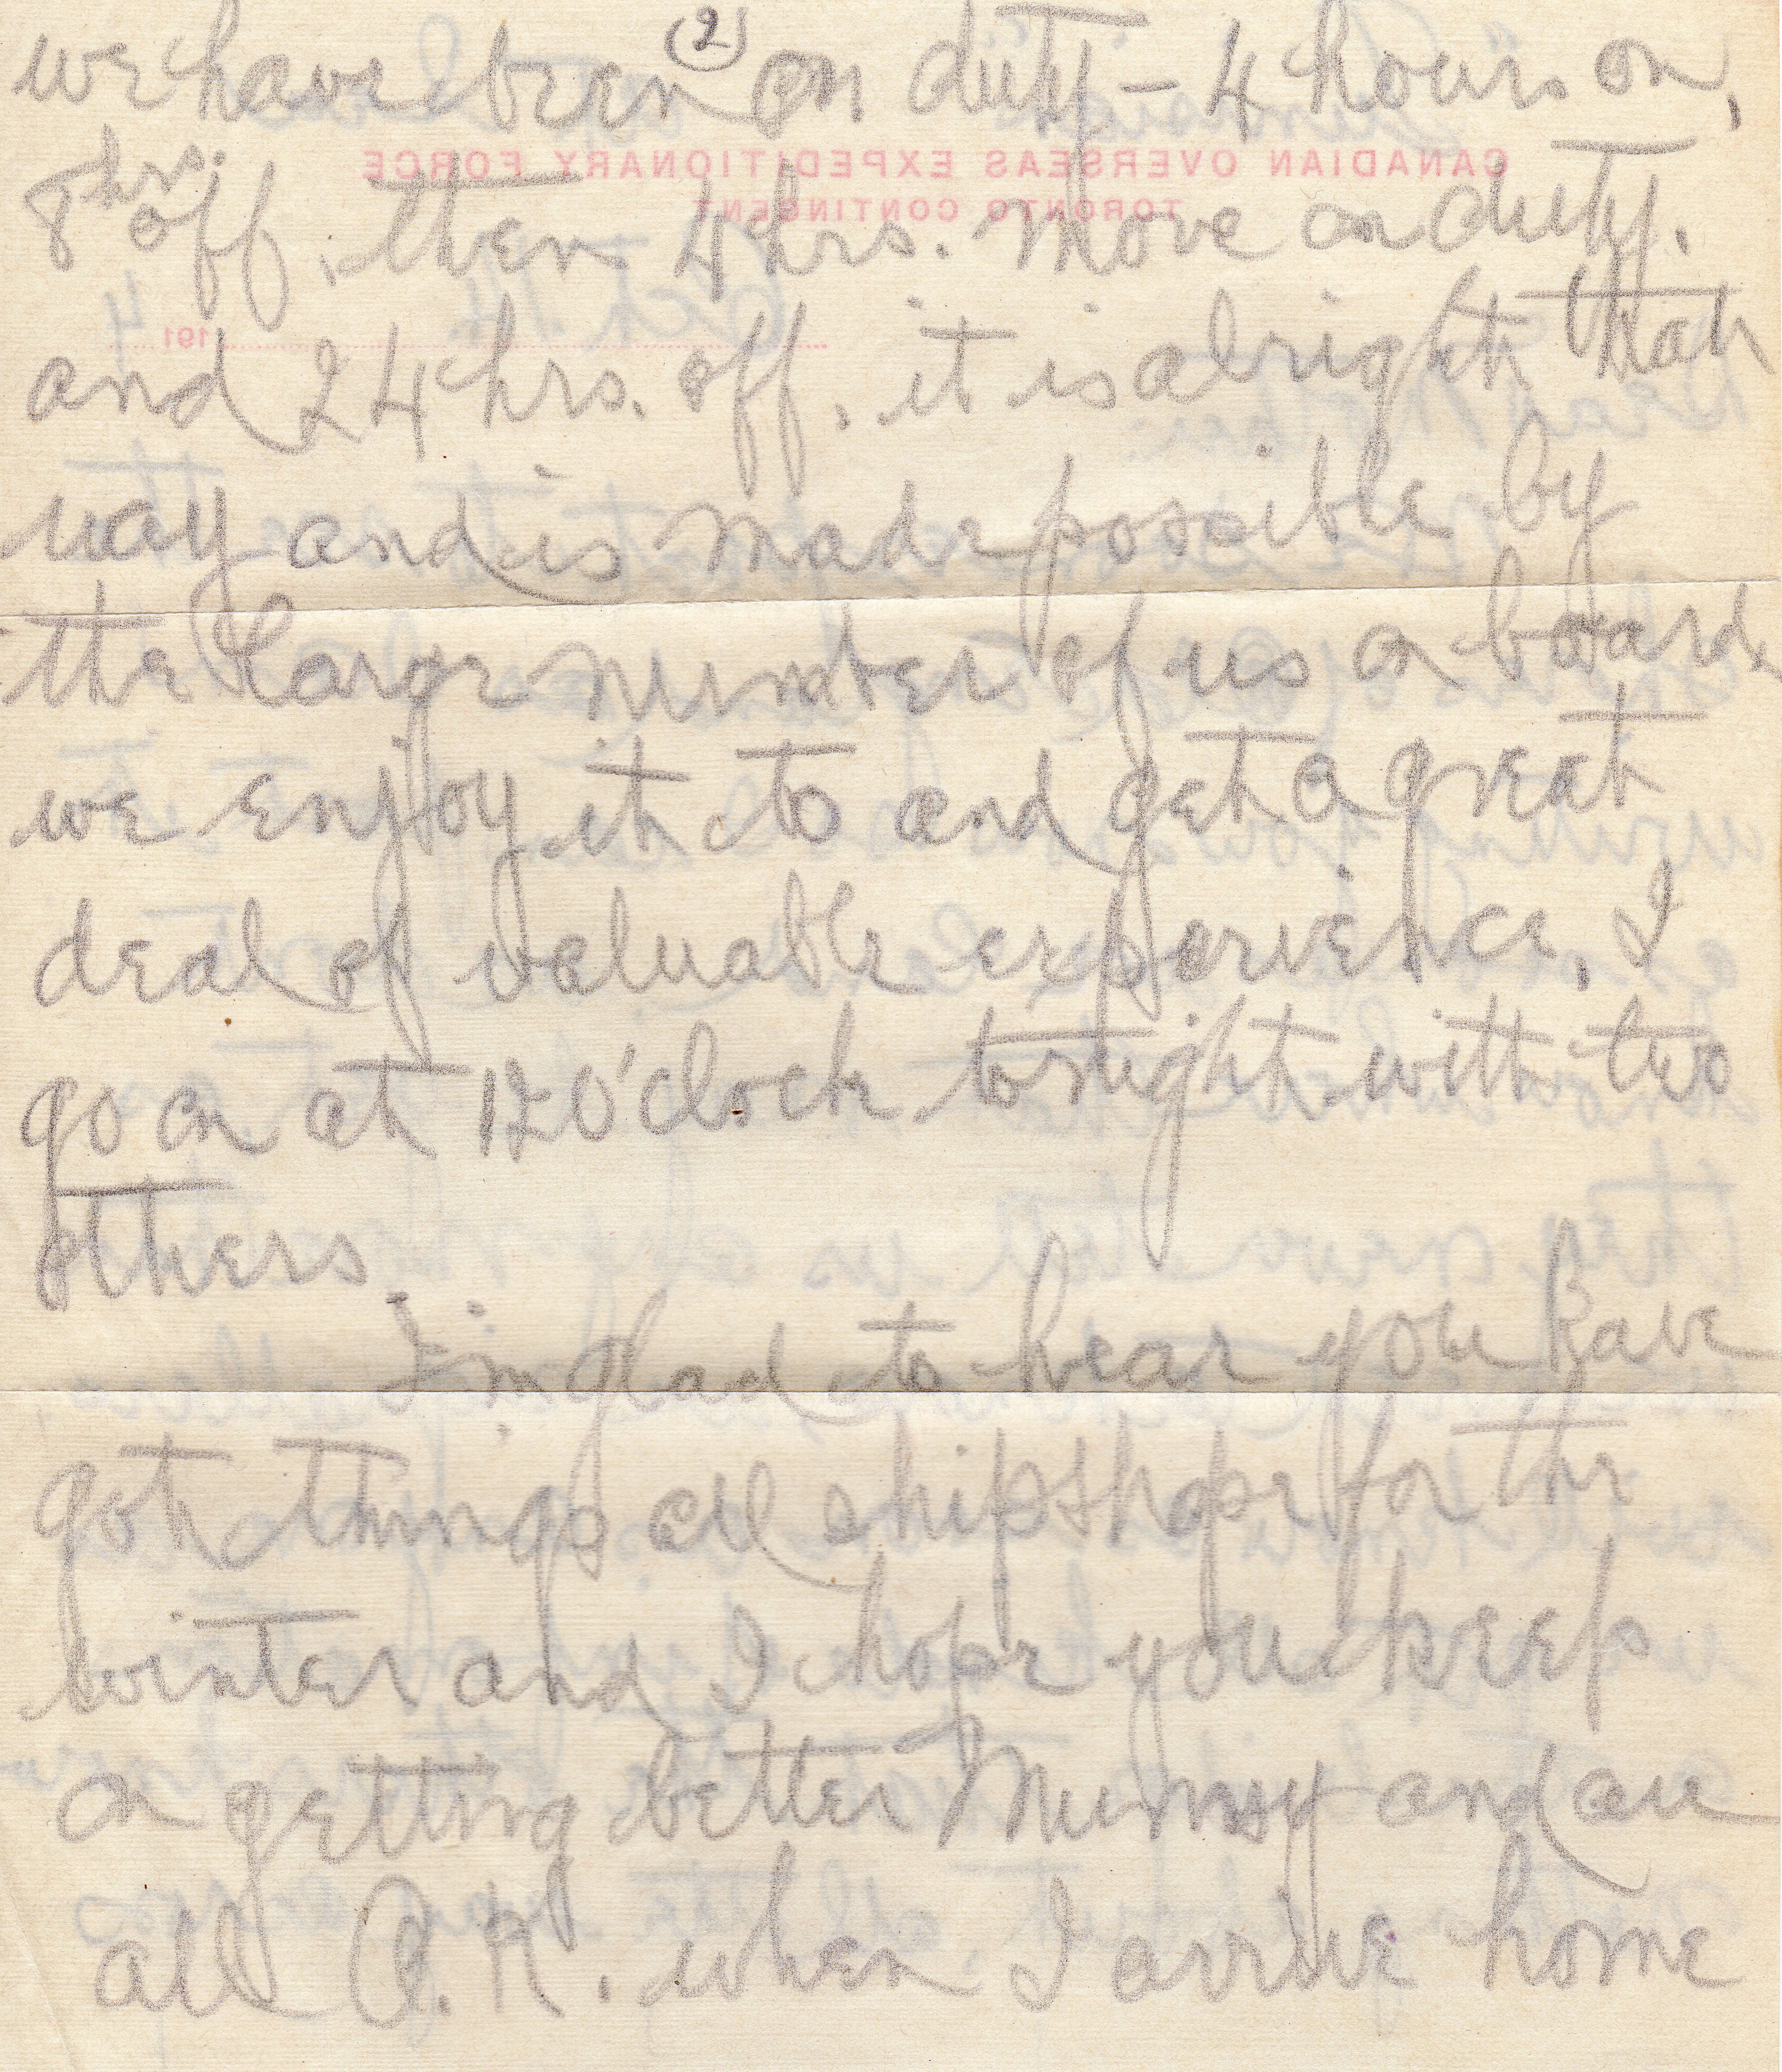 (2)
we have been on duty - 4 hours on,
8 hrs. off, then 4 hrs. more on duty.
and 24 hrs. off. it is alright that
way and is made possible by
the large number of us on board.
we enjoy it to and get a great
deal of valuable experience, I
go on at 12 O'clock tonight with two
others.
I'm glad to hear you have
got things all shipshape for the
winter and I hope you keep
on getting better Mumsy and are
all O.K. when I arrive home
CANADIAN OVERSEAS EXPEDITIONARY FORCE
TORONTO CONTINGENT
Oct. 14. 191 4